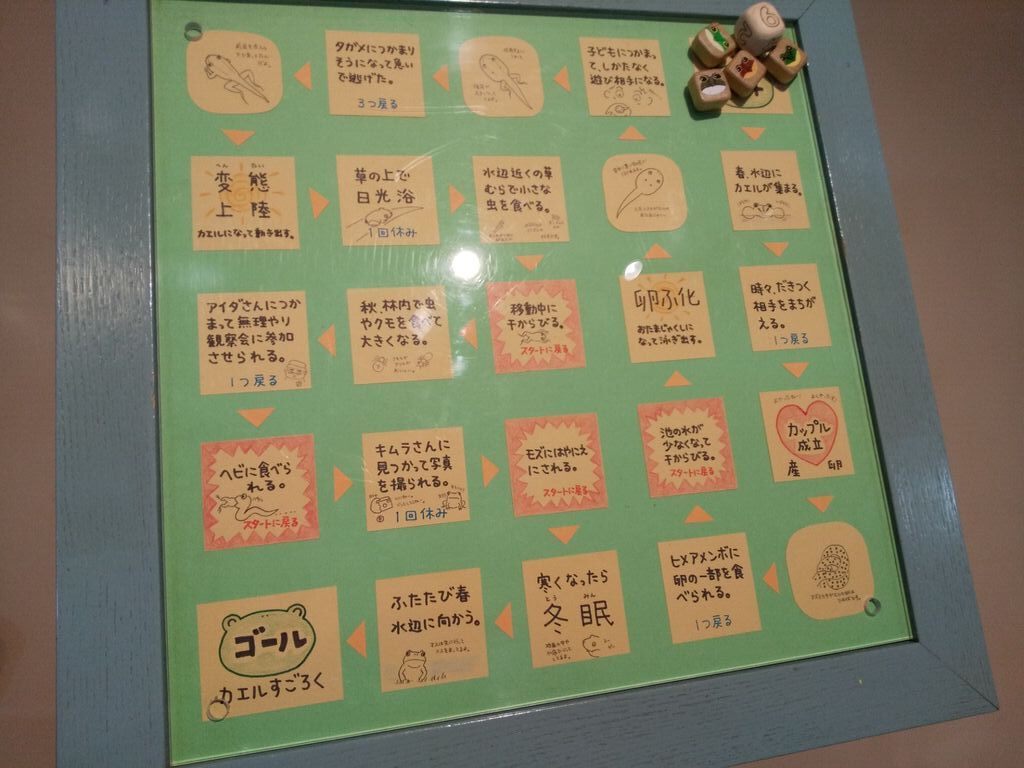 タガメにつかまり
そうになって急い
で逃げた。
3つ戻る
子どもにつかまっ
て、しかたなく
遊び相手になる。
変態
へん たい
上陸
カエルになって動き出す。
草の上で
日光浴
1回休み
水辺近くの草
むらで小さな
虫を食べる。
春、水辺に
カエルが集まる。
アイダさんにつか
まって無理やり
観察会に参加
させられる。
1つ戻る
秋、林内で虫
やクモを食べて
大きくなる。
移動中に
干からびる。
スタートに戻る
卵ふ化
おたまじゃくしに
なって泳ぎ出す。
時々、だきつく
相手をまちが
える。
1つ戻る
ヘビに食べら
れる。
スタートに戻る
キムラさんに
見つかって写真
を撮られる。
1回休み
モズにはやにえ
にされる。
スタートに戻る
池の水が
少なくなって
干からびる。
スタートに戻る
カップル
成立
産卵
ゴール
カエルすごろく
ふたたび春
水辺に向かう。
寒くなったら
とう みん
冬眠
ヒメアメンボに
卵の一部を食
べられる。
1つ戻る